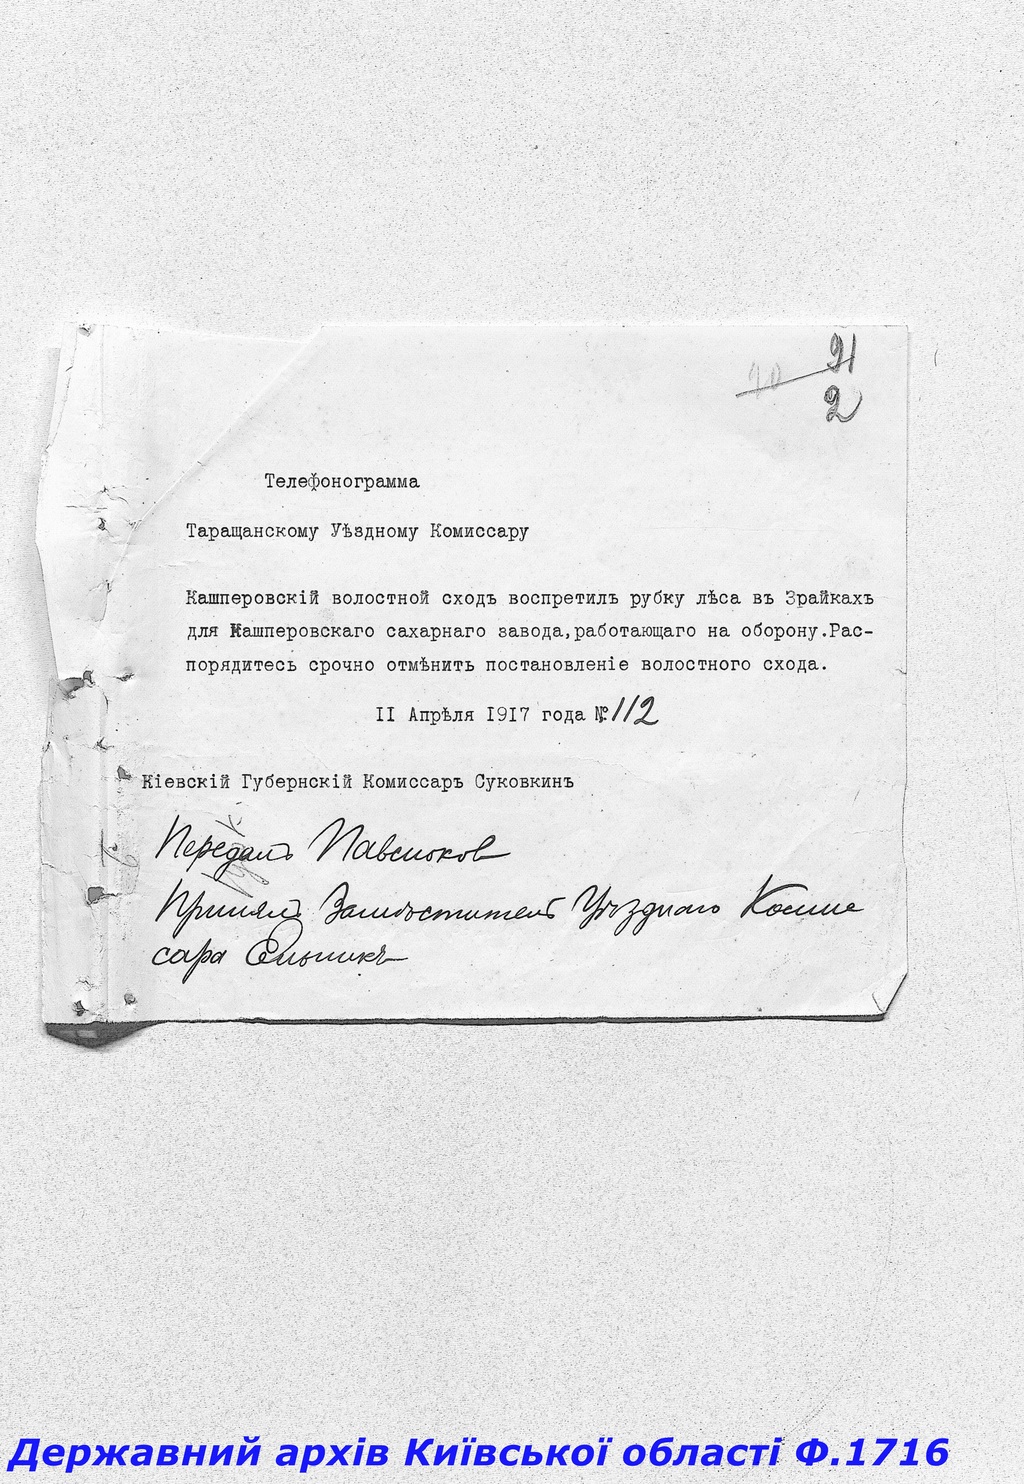 20 21
2
Телефонограмма
Таращанскому Уѣздному Комиссару
Кашперовскій волостной сходъ воспретилъ рубку лѣса въ Зрайкахъ
для Кашперовскаго сахарнаго завода,работающаго на оборону.Рас-
порядитесь срочно отмѣнить постановленіе волостного схода.
II Апрѣля I9I7 года №112
Кіевскій Губернскій Комиссаръ Суковкинъ
Передалъ
Принялъ Заместитель Уѣзднаго Комис
сара
Державний архів Київської області Ф.1716